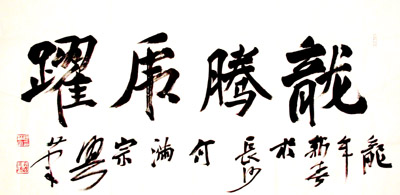 龍騰虎躍
龍年新春於長沙付滿宗